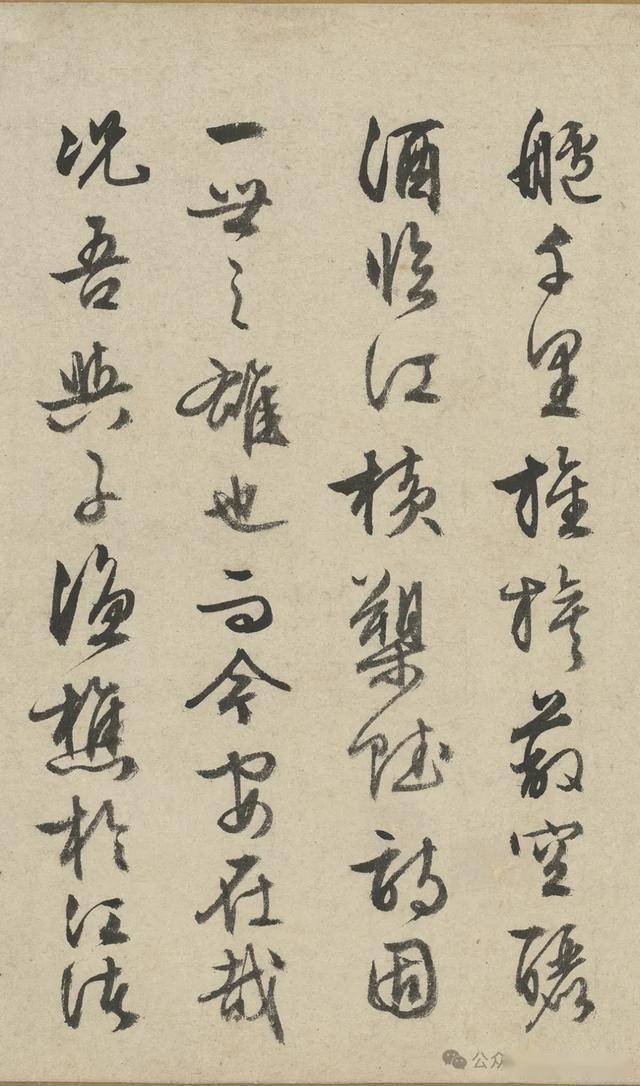 艫千里旌旗蔽空釃
酒臨江橫槊賦詩固
一世之雄也而今安在哉
況吾與子漁樵於江渚
公众